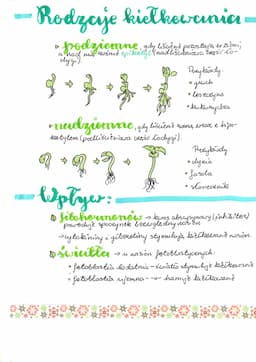 Rodzaje kiełkowania
▹ podziemne, gdy liścień pozostaje w ziemi,
a nad nią wzrost epikotyl (nadliścieniowa część ło-
dygi)
Przykłady:
• groch
• leszczyna
• kukurydza
▹ nadziemne, gdy liścień rośnie wraz z hipo-
kotylem (podliścieniowa część łodygi)
Przykłady:
• dynia
• fasola
• słonecznik
Wpływ:
fitohormonów → kwas abscysynowy (inhibitor)
powoduje spoczynek bezwzględny nasion
→ cytokininy i gibereliny stymulują kiełkowanie nasion
światła → u nasion fotoblastycznych:
• fotoblastia dodatnia – światło stymuluje kiełkowanie
• fotoblastia ujemna – hamuje kiełkowanie